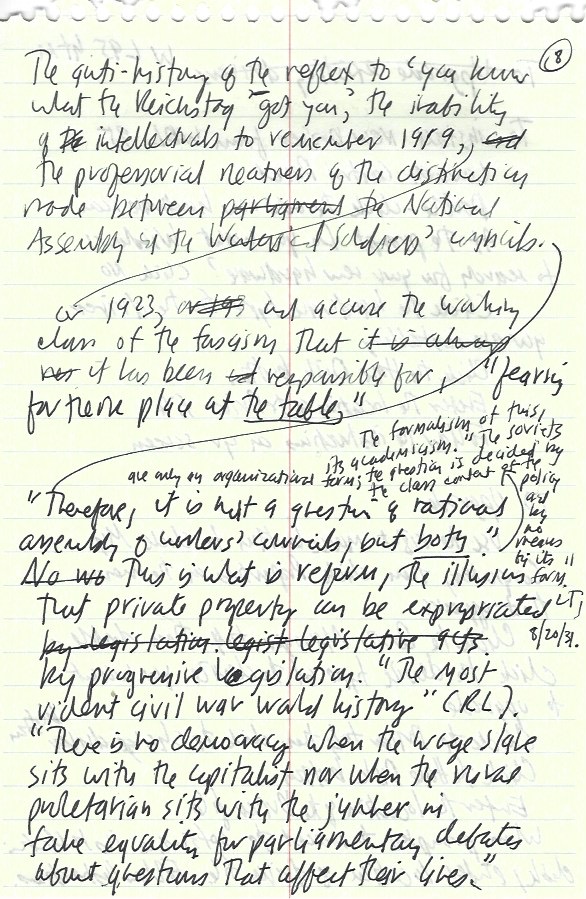 18
The anti-history of the reflex to "you know
what the Reichstag got you," the inability
of the intellectuals to remember 1919, and
the professorial neatness of the distinction
made between parliament the National
Assembly and the Workers' and Soldiers' councils.
or 1923, or 193 and accuse the working
class of the fascism that it is always
not it has been responsible for, "fearing
for their place at the table,"
The formalism of this,
its academicism. "The soviets
are only an organizational form; the question is decided by
the class content of the
policy
and
by
no
means
by its
form."
LT,
8/20/31.
"Therefore, it is not a question of national
assembly or workers' councils, but both"
No wo This is what is reform, the illusion
that private property can be expropriated
by legislation. legist legislative acts
by progressive legislation. "The most
violent civil war world history" (RL).
"There is no democracy when the wage slave
sits with the capitalist nor when the rural
proletarian sits with the junker in
fake equality for parliamentary debates
about questions that affect their lives."